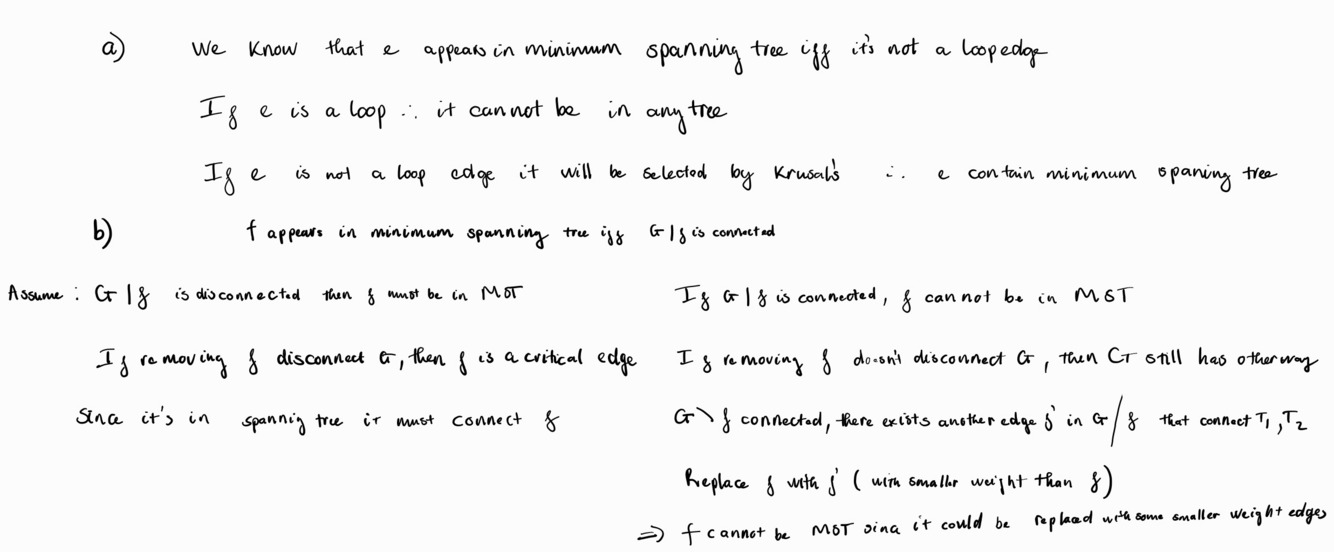 a) We know that e appears in minimum spanning tree iff it's not a loop edge
If e is a loop ∴ it cannot be in any tree
If e is not a loop edge it will be selected by Krusal's ∴ e contain minimum spaning tree
b) f appears in minimum spanning tree iff G|f is connected
Assume : G|f is disconnected then f must be in MST
If removing f disconnect G, then f is a critical edge
Since it's in spannig tree it must connect f
If G|f is connected, f cannot be in MST
If removing f doesn't disconnect G, then G still has other way
G\f connected, there exists another edge f' in G/f that connect T₁, T₂
Replace f with f' (with smaller weight than f)
⇒ f cannot be MST sinc it could be replaced with some smaller weight edges